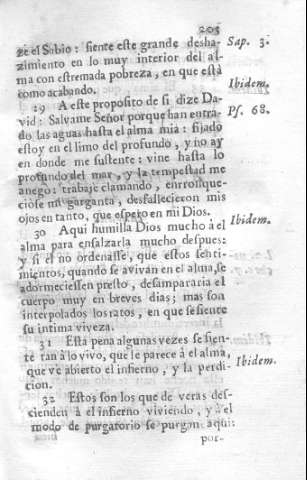 203
ze el Sabio: siente este grande desha-
zimiento en lo muy interior del al-
ma con estremada pobreza, en que està
como acabando.
Sap. 3.
Ibidem.
29 A este proposito de si dize Da-
vid: Salvame Señor porque han entra-
do las aguas hasta el alma mia: fijado
estoy en el limo del profundo, y no ay
en donde me sustente: vine hasta lo
profundo del mar, y la tempestad me
anegò: trabajè clamando, enrronque-
ciòse mi garganta, desfallecieron mis
ojos en tanto, que espero en mi Dios.
Ps. 68.
30 Aqui humilla Dios mucho à el
alma para ensalzarla mucho despues:
y si èl no ordenasse, que estos senti-
mientos, quando se avivan en el alma, se
adormeciessen presto, desampararia el
cuerpo muy en breves dias; mas son
interpolados los ratos, en que se siente
su intima viveza.
Ibidem.
31 Esta pena algunas vezes se sien-
te tan à lo vivo, que le parece à el alma,
que vè abierto el infierno, y la perdi-
cion.
Ibidem.
32 Estos son los que de veras des-
cienden à el infierno viviendo, y à el
modo de purgatorio se purgan aqui:
por-